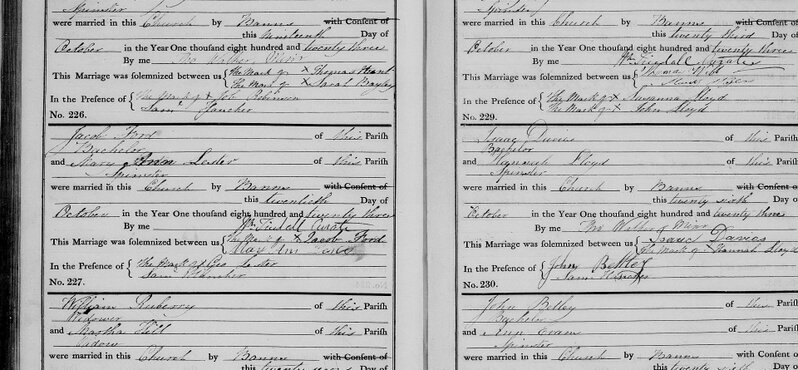 Spinster
were married in this Church by Banns with Consent of
this nineteenth Day of
October in the Year One thousand eight hundred and twenty three
By me
This Marriage was solemnized between us The Mark of X Thomas
The Mark of X Sarah Bayley
In the Presence of The Mark of X Job Robinson
Saml Fancher
No. 226.
Jacob Ford of this Parish
Bachelor
and Mary Ann Lester of this Parish
Spinster
were married in this Church by Banns with Consent of
this twentieth Day of
October in the Year One thousand eight hundred and twenty three
By me Wm Tindall Curate
This Marriage was solemnized between us The Mark of X Jacob Ford
Mary Ann
In the Presence of The Mark of Geo Lester
Saml Fancher
No. 227.
William Ruberry of this Parish
Widower
and Martha of this Parish
Widow
were married in this Church by Banns with Consent of
this twenty Day of
Spinster
were married in this Church by Banns with Consent of
this twenty third Day of
October in the Year One thousand eight hundred and twenty three
By me Wm Tindall Curate
This Marriage was solemnized between us Thomas
In the Presence of The Mark of X Susanna Lloyd
The Mark of X John Lloyd
No. 229.
Isaac Davies of this Parish
Bachelor
and Hannah Lloyd of this Parish
Spinster
were married in this Church by Banns with Consent of
this twenty sixth Day of
October in the Year One thousand eight hundred and twenty three
By me
This Marriage was solemnized between us Isaac Davies
The Mark of X Hannah Lloyd
In the Presence of John Betley
Saml Fancher
No. 230.
John Betley of this Parish
Bachelor
and Ann Evans of this Parish
Spinster
were married in this Church by Banns with Consent of
this twenty sixth Day of